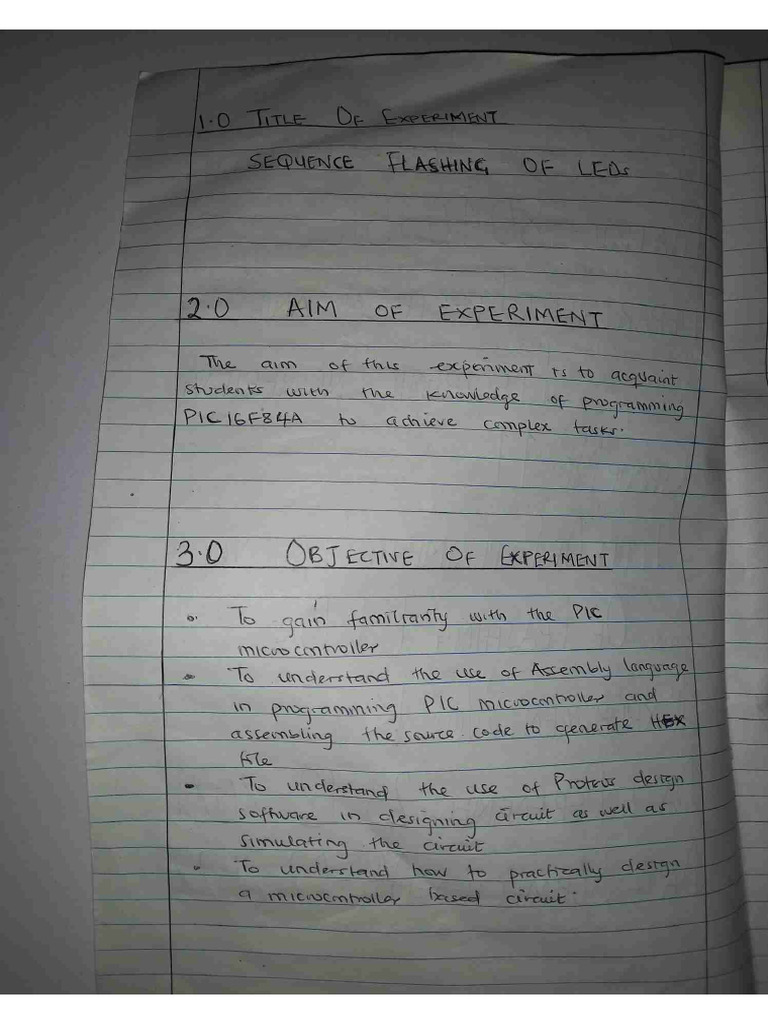 1.0 TITLE OF EXPERIMENT
SEQUENCE FLASHING OF LEDs
2.0 AIM OF EXPERIMENT
The aim of this experiment is to acquaint
students with the knowledge of programming
PIC16F84A to achieve complex tasks.
3.0 OBJECTIVE OF EXPERIMENT
• To gain familiarity with the PIC
microcontroller
• To understand the use of Assembly language
in programming PIC microcontroller and
assembling the source code to generate HEX
file
• To understand the use of Proteus design
software in designing circuit as well as
simulating the circuit
• To understand how to practically design
a microcontroller based circuit.